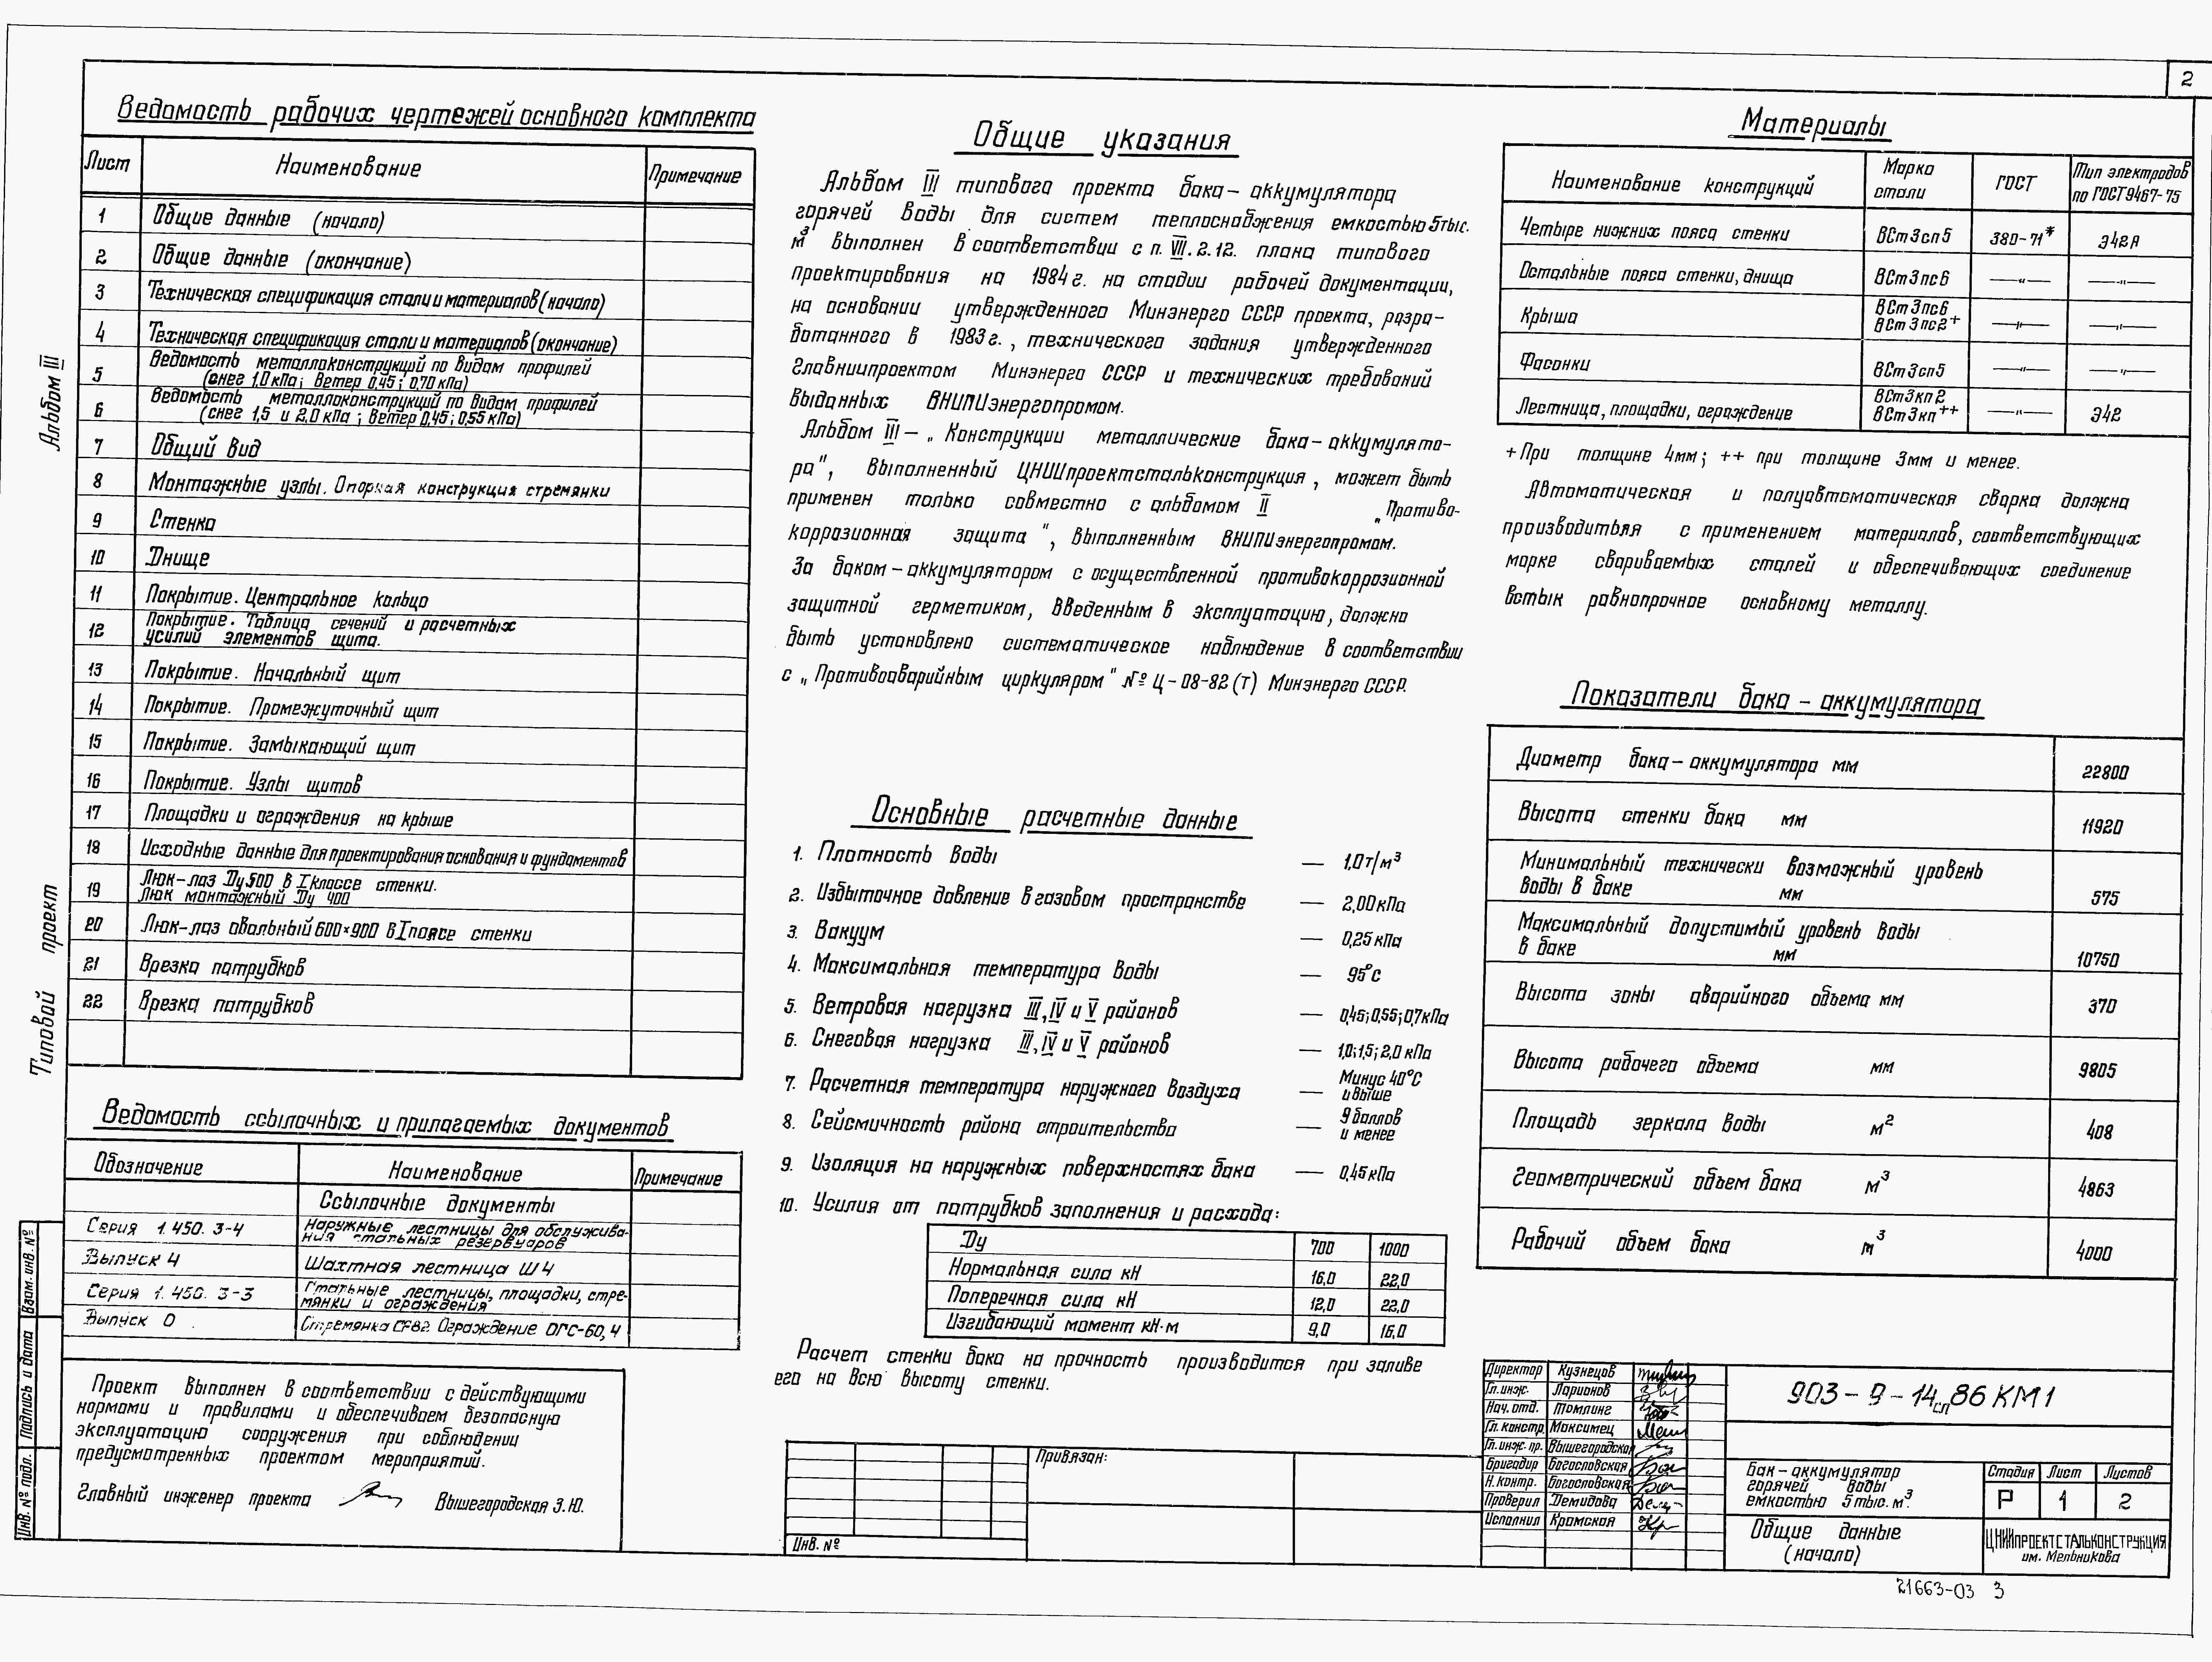 2
Альбом III
Типовой проект
Ведомость рабочих чертежей основного комплекта
Лист Наименование Примечание
1 Общие данные (начало)
2 Общие данные (окончание)
3 Техническая спецификация стали и материалов (начало)
4 Техническая спецификация стали и материалов (окончание)
5 Ведомость металлоконструкций по видам профилей
(снег 1,0 кПа; Ветер 0,45; 0,70 кПа)
6 Ведомость металлоконструкций по видам профилей
(снег 1,5 и 2,0 кПа; Ветер 0,45; 0,55 кПа)
7 Общий вид
8 Монтажные узлы. Опорная конструкция стремянки
9 Стенка
10 Днище
11 Покрытие. Центральное кольцо
12 Покрытие. Таблица сечений и расчетных
усилий элементов щита.
13 Покрытие. Начальный щит
14 Покрытие. Промежуточный щит
15 Покрытие. Замыкающий щит
16 Покрытие. Узлы щитов
17 Площадки и ограждения на крыше
18 Исходные данные для проектирования основания и фундаментов
19 Люк-лаз Ду 500 в I классе стенки.
Люк монтажный Ду 400
20 Люк-лаз овальный 600×900 в I поясе стенки
21 Врезка патрубков
22 Врезка патрубков
Ведомость ссылочных и прилагаемых документов
Обозначение Наименование Примечание
Ссылочные документы
Серия 1.450.3-4 Наружные лестницы для обслужива-
ния стальных резервуаров
Выпуск 4 Шахтная лестница Ш4
Серия 1.450.3-3 Стальные лестницы, площадки, стре-
мянки и ограждения
Выпуск 0 Стремянка Ограждение ОГС-60,4
Проект выполнен в соответствии с действующими
нормами и правилами и обеспечиваем безопасную
эксплуатацию сооружения при соблюдении
предусмотренных проектом мероприятий.
Главный инженер проекта Вышегородская З.Ю.
Взам. инв. №
Подпись и дата
Инв. № подл.
Общие указания
Альбом III типового проекта бака-аккумулятора
горячей воды для систем теплоснабжения емкостью 5 тыс.
м³ выполнен в соответствии с п. VIII.2.12. плана типового
проектирования на 1984 г. на стадии рабочей документации,
на основании утвержденного Минэнерго СССР проекта, разра-
ботанного в 1983 г., технического задания утвержденного
Главниипроектом Минэнерго СССР и технических требований
выданных ВНИПИэнергопромом.
Альбом III – „Конструкции металлические бака-аккумулято-
ра", выполненный ЦНИИпроектстальконструкция, может быть
применен только совместно с альбомом II „Противо-
коррозионная защита", выполненным ВНИПИэнергопромом.
За баком-аккумулятором с осуществленной противокоррозионной
защитной герметиком, введенным в эксплуатацию, должно
быть установлено систематическое наблюдение в соответствии
с „Противоаварийным циркуляром" № Ц-08-82 (Т) Минэнерго СССР.
Основные расчетные данные
1. Плотность воды — 1,0 т/м³
2. Избыточное давление в газовом пространстве — 2,00 кПа
3. Вакуум — 0,25 кПа
4. Максимальная температура воды — 95°С
5. Ветровая нагрузка III, IV и V районов — 0,45; 0,55; 0,7 кПа
6. Снеговая нагрузка III, IV и V районов — 1,0; 1,5; 2,0 кПа
7. Расчетная температура наружного воздуха — Минус 40°С
и выше
8. Сейсмичность района строительства — 9 баллов
и менее
9. Изоляция на наружных поверхностях бака — 0,45 кПа
10. Усилия от патрубков заполнения и расхода:
Ду 700 1000
Нормальная сила кН 16,0 22,0
Поперечная сила кН 12,0 22,0
Изгибающий момент кН·м 9,0 16,0
Расчет стенки бака на прочность производится при заливе
его на всю высоту стенки.
Привязан:
Инв. №
Материалы
Наименование конструкций Марка стали ГОСТ Тип электродов по ГОСТ 9467-75
Четыре нижних пояса стенки ВСт3сп5 380-71* Э42А
Остальные пояса стенки, днища ВСт3пс6 —"— —"—
Крыша ВСт3пс6
ВСт3пс2+ —"— —"—
Фасонки ВСт3сп5 —"— —"—
Лестница, площадки, ограждение ВСт3кп2
ВСт3кп++ —"— Э42
+ При толщине 4мм; ++ при толщине 3мм и менее.
Автоматическая и полуавтоматическая сварка должна
производиться с применением материалов, соответствующих
марке свариваемых сталей и обеспечивающих соединение
встык равнопрочное основному металлу.
Показатели бака-аккумулятора
Диаметр бака-аккумулятора мм 22800
Высота стенки бака мм 11920
Минимальный технически возможный уровень
воды в баке мм 575
Максимальный допустимый уровень воды
в баке мм 10750
Высота зоны аварийного объема мм 370
Высота рабочего объема мм 9805
Площадь зеркала воды м² 408
Геометрический объем бака м³ 4863
Рабочий объем бака м³ 4000
Директор Кузнецов
Гл. инж. Ларионов
Нач. отд. Томлинг
Гл. констр. Максимец
Гл. инж. пр. Вышегородская
Бригадир Богословская
Н. контр. Богословская
Проверил Демидова
Исполнил Крамская
903-9-14сп86 КМ1
Бак-аккумулятор
горячей воды
емкостью 5 тыс. м³.
Стадия Лист Листов
Р 1 2
Общие данные
(начало)
ЦНИИПРОЕКТСТАЛЬКОНСТРУКЦИЯ
им. Мельникова
21663-03 3